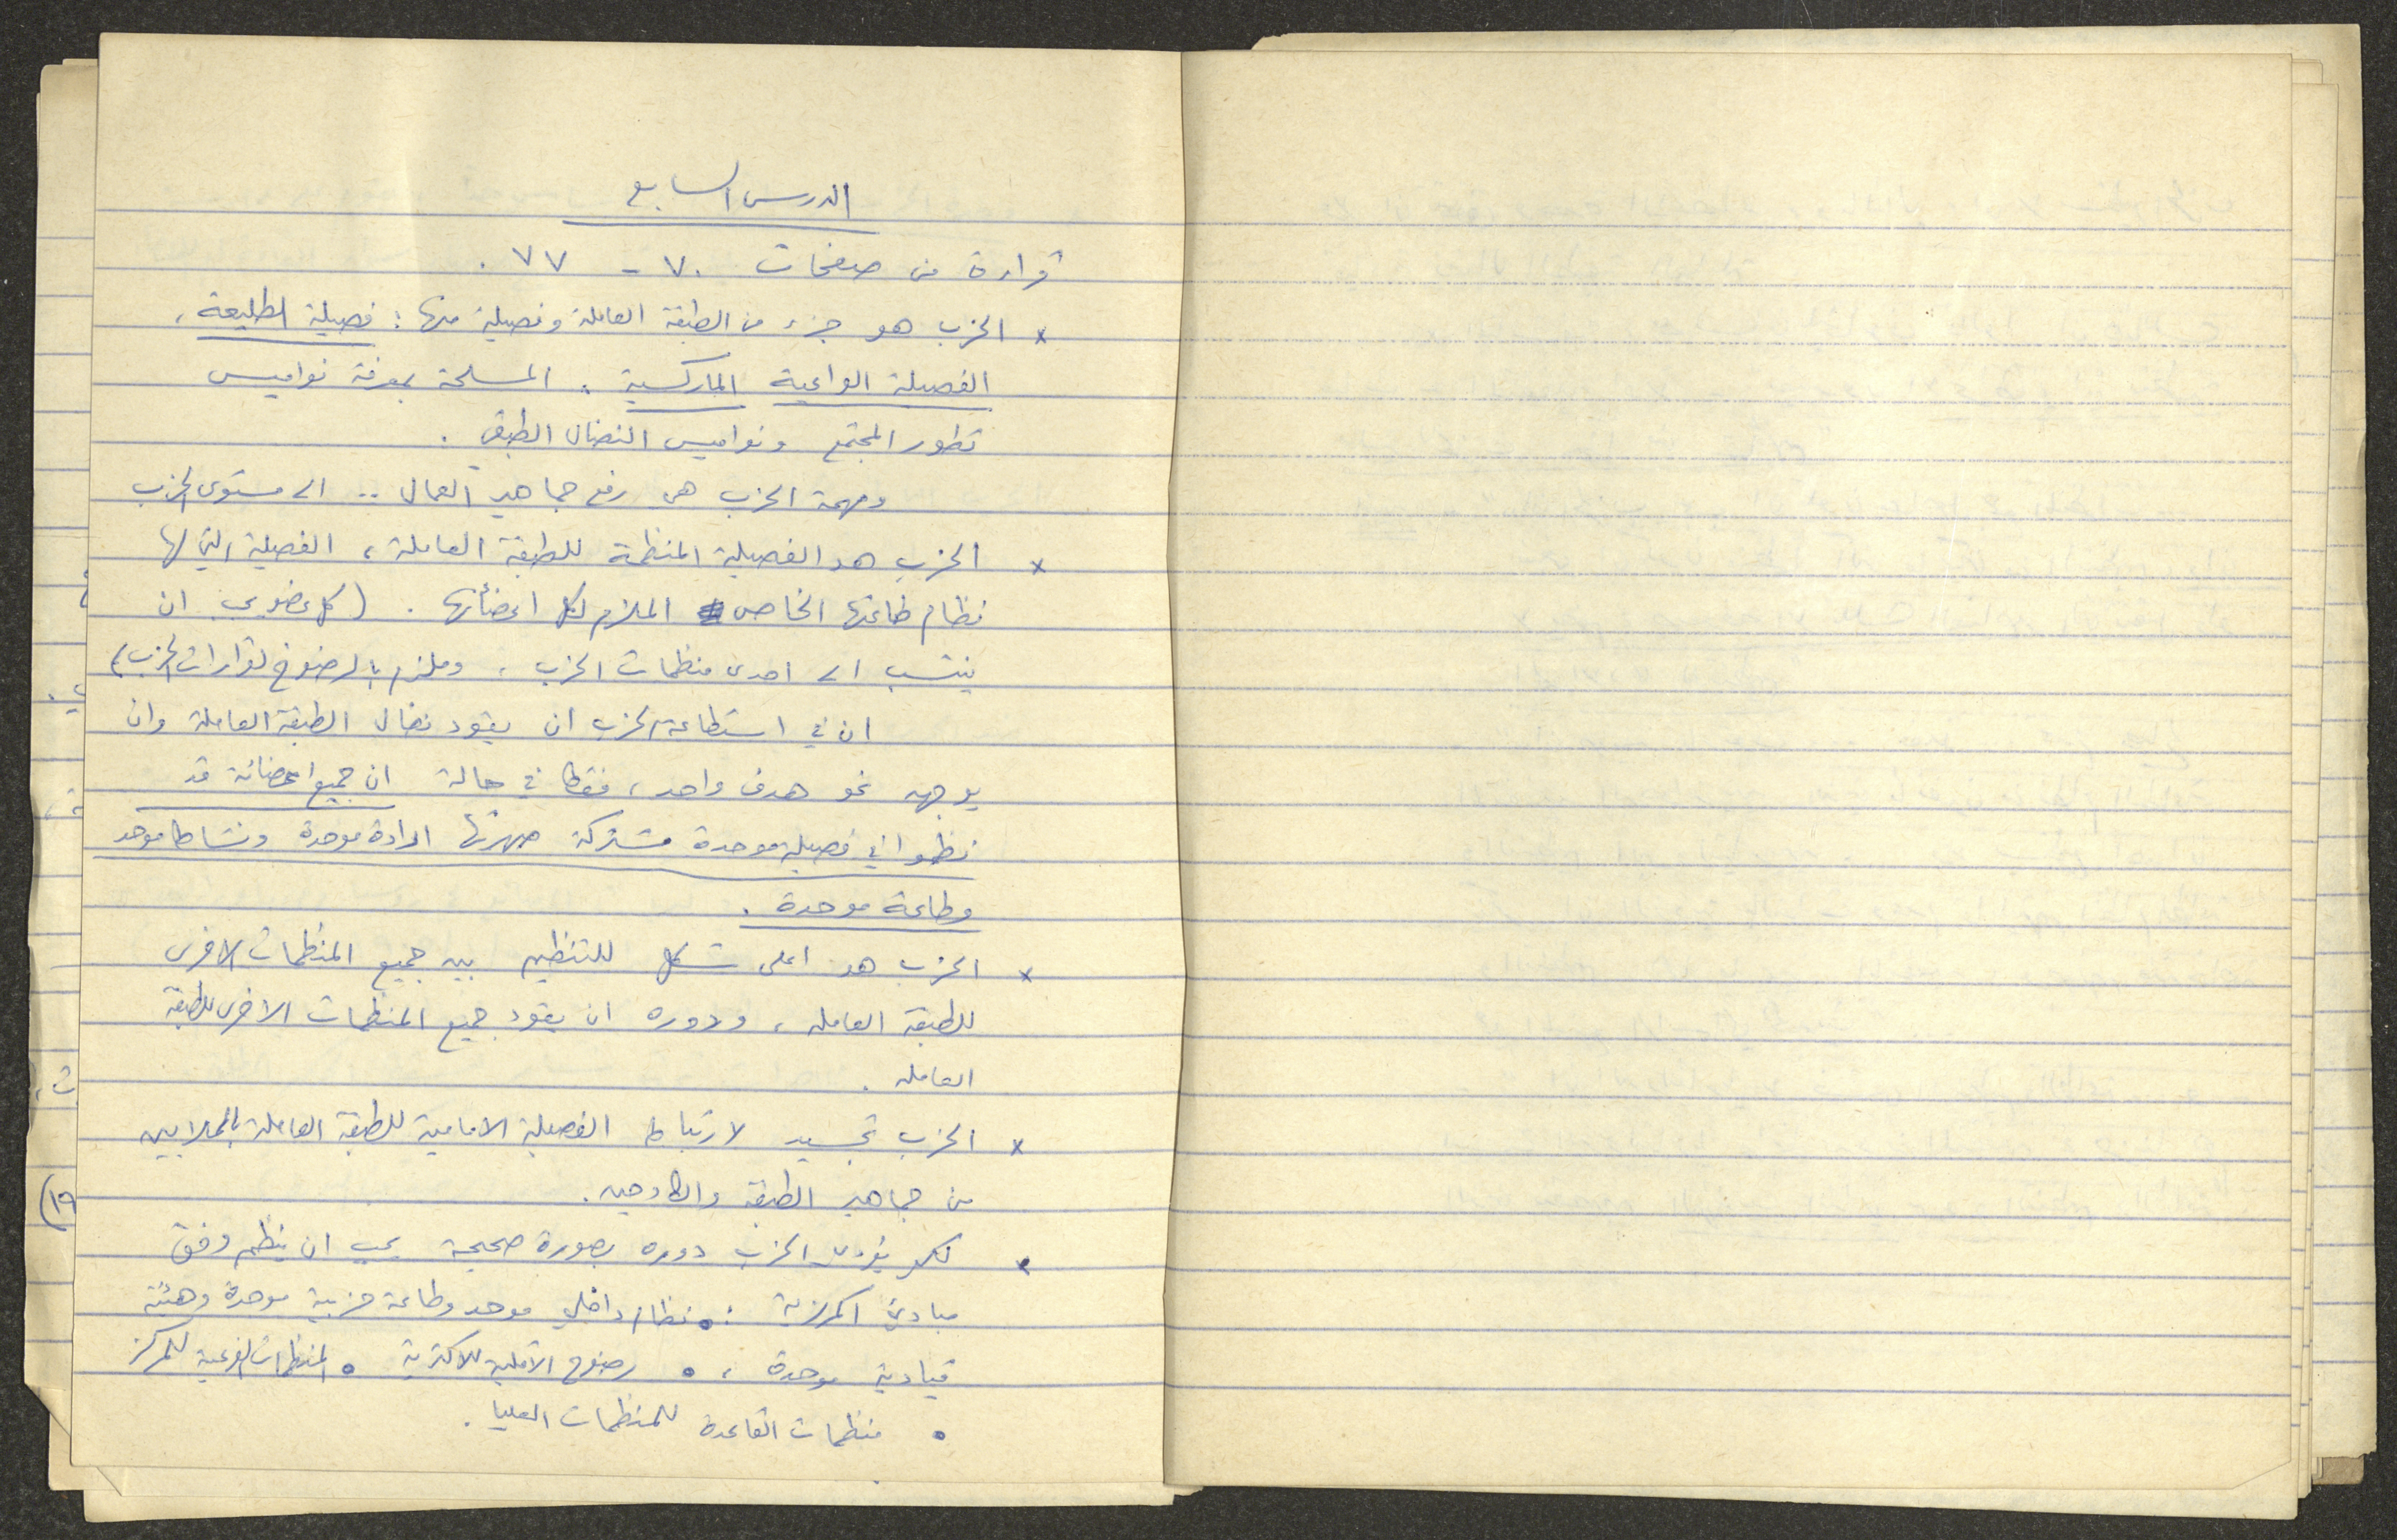 الدرس السابع
قراءة من صفحات ٧٠ - ٧٧ .
× الحزب هو جزء من الطبقة العاملة وفصيلة منها : فصيلة الطليعة ،
الفصيلة الواعية الماركسية ، المسلحة بمعرفة نواميس
تطور المجتمع ونواميس النضال الطبقي .
ومهمة الحزب هي رفع جماهير العمال .. الى مستوى الحزب
× الحزب هو الفصيلة المنظمة للطبقة العاملة ، الفصيلة التي لها
نظام طاعتها الخاص الملزم لكل اعضائها . ( كل عضو يجب ان
ينتسب الى احدى منظمات الحزب ، وملزم بالرضوخ لقرارات الحزب )
ان في استطاعة الحزب ان يقود نضال الطبقة العاملة وان
يوجهه نحو هدف واحد ، فقط في حالة ان جميع اعضائه قد
نظموا في فصيلة موحدة مشتركة صهرتها ارادة موحدة ونشاط موحد
وطاعة موحدة .
× الحزب هو اعلى شكل للتنظيم بين جميع المنظمات الاخرى
للطبقة العاملة ، ودوره ان يقود جميع المنظمات الاخرى للطبقة
العاملة .
× الحزب تجسيد لارتباط الفصيلة الامامية للطبقة العاملة بالملايين
من جماهير الطبقة والكادحين .
× لكي يؤدي الحزب دوره بصورة صحيحة يجب ان ينظم وفق
مبادئ المركزية : • نظام داخلي موحد وطاعة حزبية موحدة وهيئة
قيادية موحدة ، • رضوخ الاقلية للاكثرية • المنظمات الفرعية للمركز
• منظمات القاعدة للمنظمات العليا .
١٩)